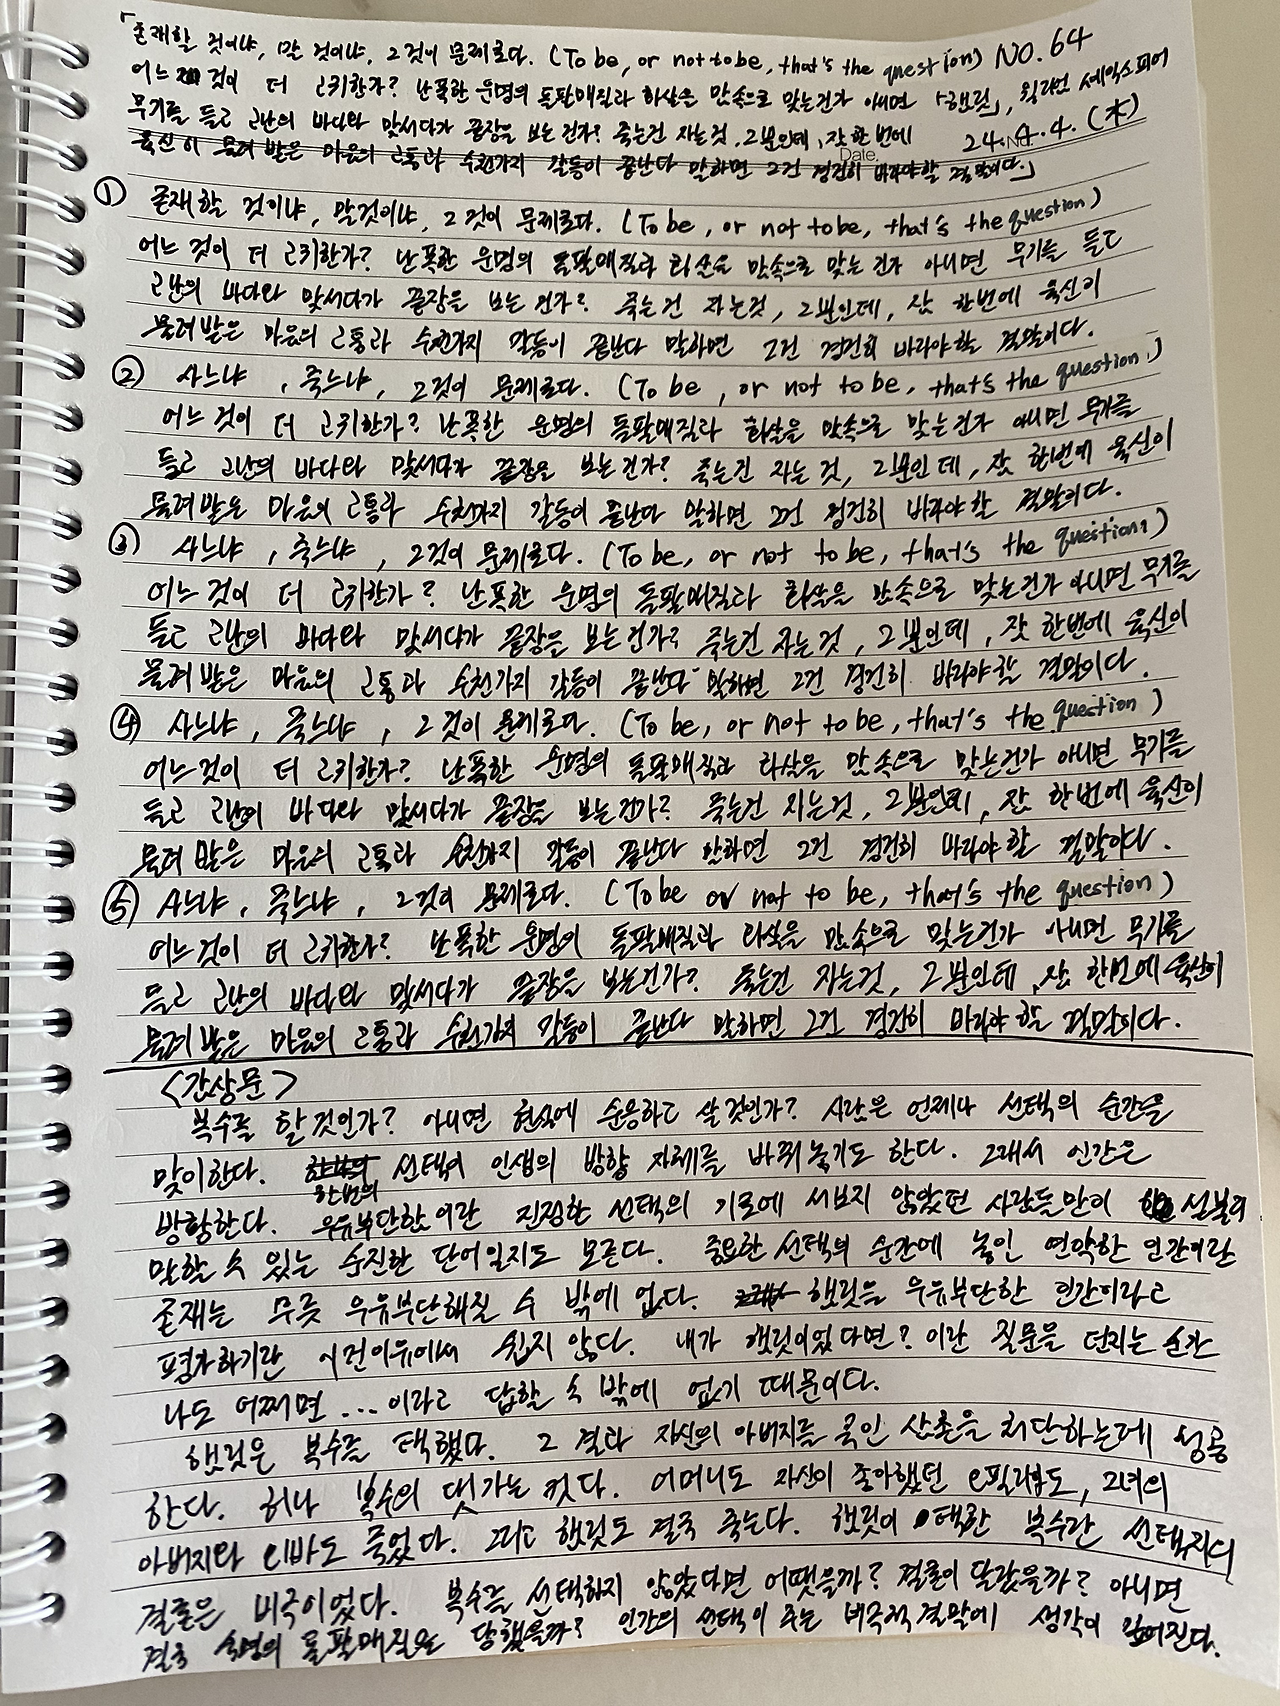 「존재할 것이냐, 말 것이냐, 그것이 문제로다. (To be, or not to be, that's the question) NO.64
어느 것이 더 고귀한가? 난폭한 운명의 돌팔매질과 화살을 맘속으로 맞는건가 아니면 「햄릿」, 윌리엄 셰익스피어
무기를 들고 고난의 바다와 맞서다가 끝장을 보는 건가? 죽는건 자는것, 그뿐인데, 잠 한번에 24.4.4.(木)
No.
Date.
육신이 물려 받은 마음의 고통과 수천가지 갈등이 끝난다 말하면 그건 경건히 바라야할 결말이다.」
① 존재할 것이냐, 말것이냐, 그것이 문제로다. (To be, or not to be, that's the question)
어느 것이 더 고귀한가? 난폭한 운명의 돌팔매질과 화살을 맘속으로 맞는 건가 아니면 무기를 들고
고난의 바다와 맞서다가 끝장을 보는 건가? 죽는건 자는것, 그뿐인데, 잠 한번에 육신이
물려받은 마음의 고통과 수천가지 갈등이 끝난다 말하면 그건 경건히 바라야할 결말이다.
② 사느냐, 죽느냐, 그것이 문제로다. (To be, or not to be, that's the question.)
어느 것이 더 고귀한가? 난폭한 운명의 돌팔매질과 화살을 맘속으로 맞는건가 아니면 무기를
들고 고난의 바다와 맞서다가 끝장을 보는건가? 죽는건 자는 것, 그뿐인데, 잠 한번에 육신이
물려받은 마음의 고통과 수천가지 갈등이 끝난다 말하면 그건 경건히 바라야할 결말이다.
③ 사느냐, 죽느냐, 그것이 문제로다. (To be, or not to be, that's the question)
어느것이 더 고귀한가? 난폭한 운명의 돌팔매질과 화살을 맘속으로 맞는건가 아니면 무기를
들고 고난의 바다와 맞서다가 끝장을 보는건가? 죽는건 자는것, 그뿐인데, 잠 한번에 육신이
물려받은 마음의 고통과 수천가지 갈등이 끝난다 말하면 그건 경건히 바라야할 결말이다.
④ 사느냐, 죽느냐, 그것이 문제로다. (To be, or not to be, that's the question)
어느것이 더 고귀한가? 난폭한 운명의 돌팔매질과 화살을 맘속으로 맞는건가 아니면 무기를
들고 고난의 바다와 맞서다가 끝장을 보는건가? 죽는건 자는것, 그뿐인데, 잠 한번에 육신이
물려 받은 마음의 고통과 수천가지 갈등이 끝난다 말하면 그건 경건히 바라야 할 결말이다.
⑤ 사느냐, 죽느냐, 그것이 문제로다. (To be or not to be, that's the question)
어느것이 더 고귀한가? 난폭한 운명의 돌팔매질과 화살을 맘속으로 맞는건가 아니면 무기를
들고 고난의 바다와 맞서다가 끝장을 보는건가? 죽는건 자는것, 그뿐인데, 잠 한번에 육신이
물려 받은 마음의 고통과 수천가지 갈등이 끝난다 말하면 그건 경건히 바라야 할 결말이다.
<감상문>
복수를 할것인가? 아니면 현실에 순응하고 살것인가? 사람은 언제나 선택의 순간을
맞이한다. 한번의 선택이 인생의 방향 자체를 바꿔 놓기도 한다. 그래서 인간은
방황한다. 우유부단함이란 진정한 선택의 기로에 서보지 않았던 사람들만이 섣불리
말할 수 있는 순진한 단어일지도 모른다. 중요한 선택의 순간에 놓인 연약한 인간이란
존재는 무릇 우유부단해질 수 밖에 없다. 햄릿을 우유부단한 인간이라고
평가하기란 이런이유에서 쉽지 않다. 내가 햄릿이었다면? 이란 질문을 던지는 순간
나도 어쩌면 ... 이라고 답할 수 밖에 없기 때문이다.
햄릿은 복수를 택했다. 그 결과 자신의 아버지를 죽인 삼촌을 처단하는데 성공
한다. 허나 복수의 댓가는 컸다. 어머니도 자신이 좋아했던 오필리아도, 그녀의
아버지와 오빠도 죽었다. 그리고 햄릿도 결국 죽는다. 햄릿이 택한 복수란 선택지의
결론은 비극이었다. 복수를 선택하지 않았다면 어땟을까? 결론이 달랐을까? 아니면
결국 숙명의 돌팔매질을 당했을까? 인간의 선택이 주는 비극적 결말에 생각이 깊어진다.